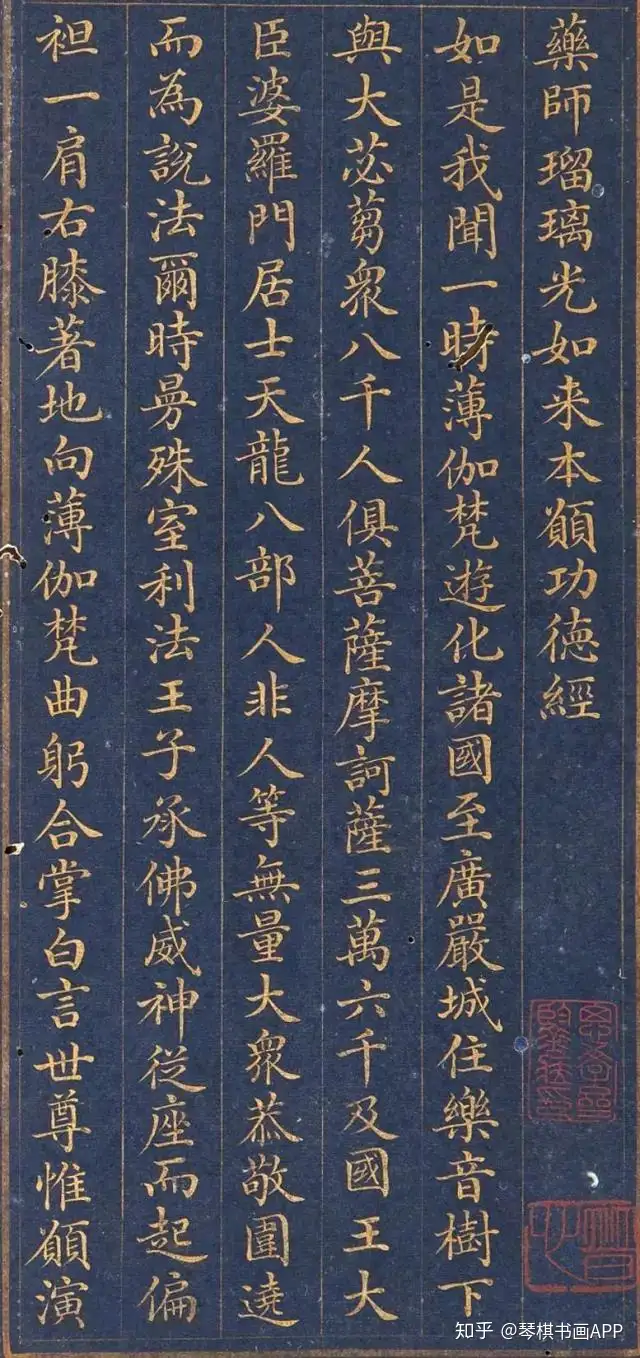 藥師瑠璃光如来本願功徳經
如是我聞一時薄伽梵遊化諸國至廣嚴城住樂音樹下
與大苾蒭衆八千人俱菩薩摩訶薩三萬六千及國王大
臣婆羅門居士天龍八部人非人等無量大衆恭敬圍遶
而為說法爾時曼殊室利法王子承佛威神從座而起偏
袒一肩右膝著地向薄伽梵曲躬合掌白言世尊惟願演
知乎 @琴棋书画APP